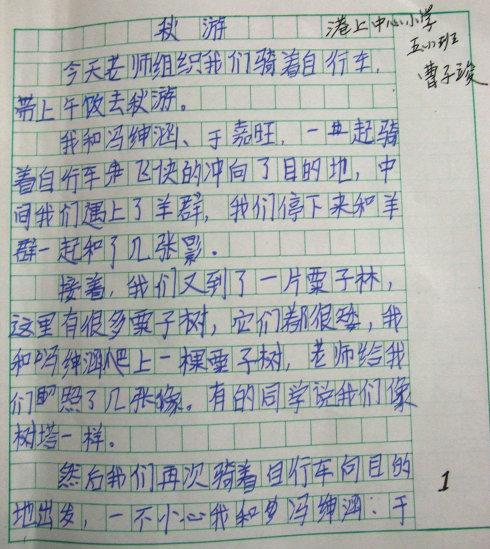 秋游
港上中心小学
五(1)班
曹子骏
今天老师组织我们骑着自行车，
带上午饭去秋游。
我和冯绅涵、于嘉旺，一起骑
着自行车飞快的冲向了目的地，中
间我们遇上了羊群，我们停下来和羊
群一起和了几张影。
接着，我们又到了一片栗子林，
这里有很多栗子树，它们都很矮，我
和冯绅涵爬上一棵栗子树，老师给我
们照了几张像。有的同学说我们像
树塔一样。
然后我们再次骑着自行车向目的
地出发，一不小心我和冯绅涵：于
1